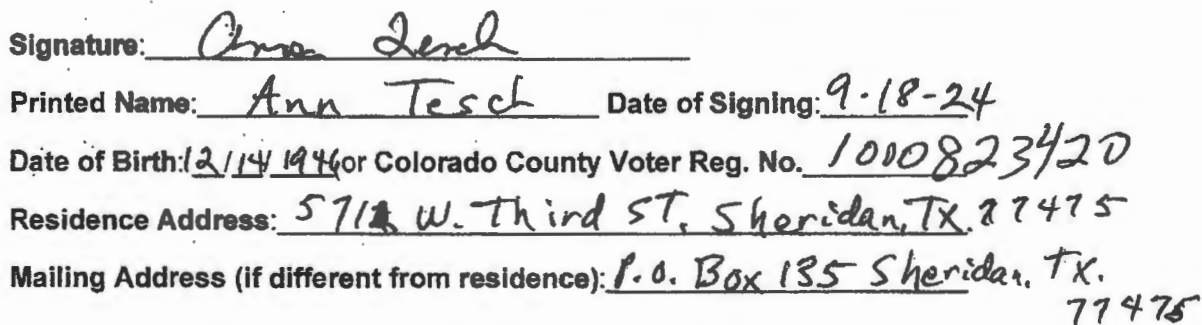 Signature: Ann Tesch
Printed Name: Ann Tesch Date of Signing: 9-18-24
Date of Birth: 12/14/1946 or Colorado County Voter Reg. No. 1000823420
Residence Address: W. Third ST, Sheridan, TX. 77475
Mailing Address (if different from residence): P.O. Box 135 Sheridan, TX.
77475